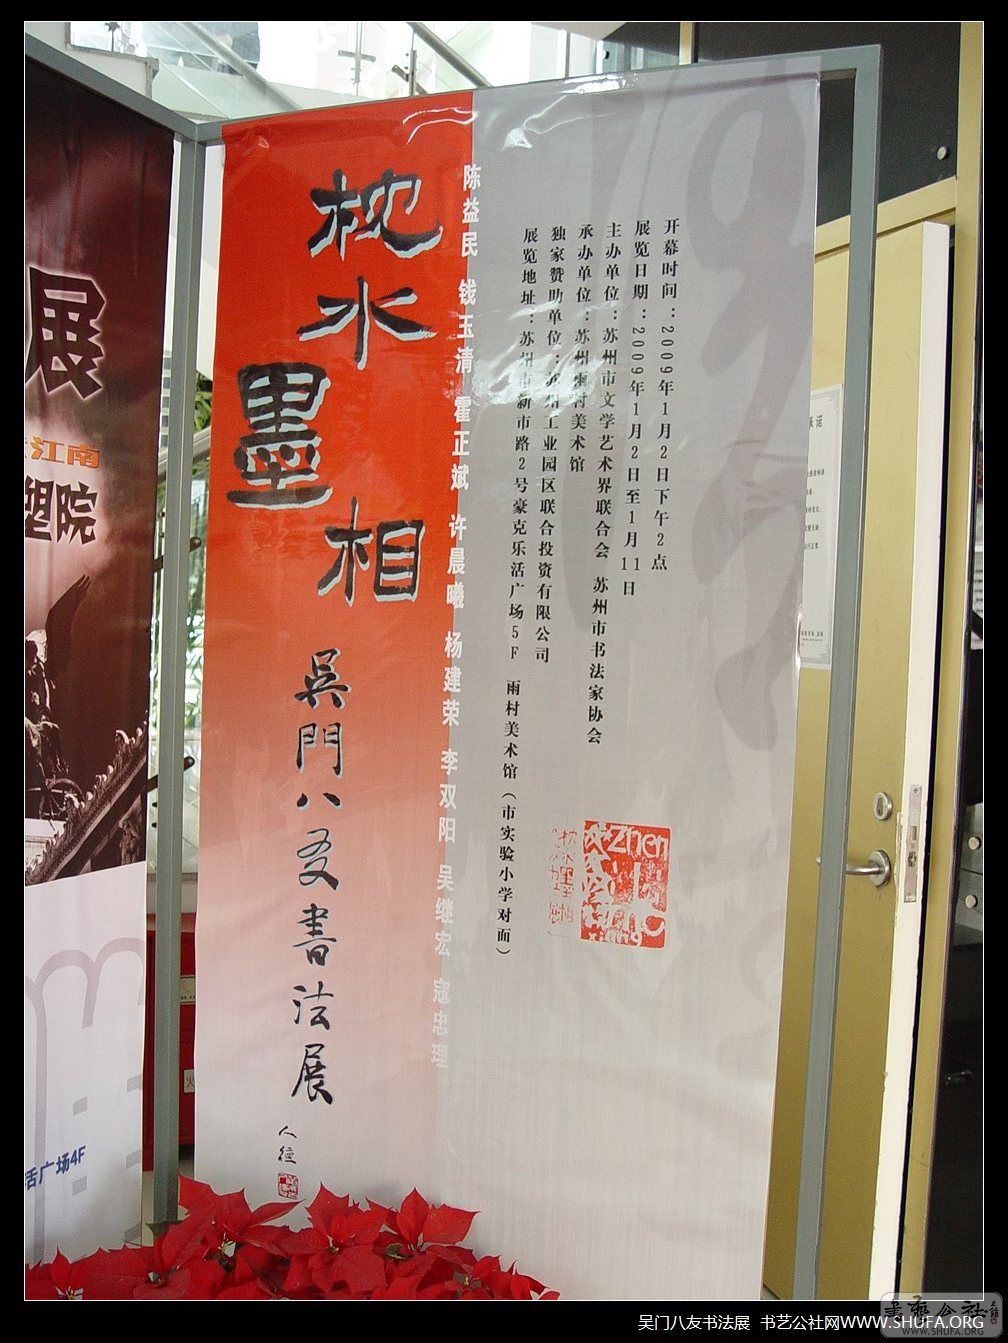 开幕时间：2009年1月2日下午2点
展览日期：2009年1月2日至1月11日
主办单位：苏州市文学艺术界联合会 苏州市书法家协会
承办单位：苏州雨村美术馆
独家赞助单位：苏州工业园区联合投资有限公司
展览地址：苏州市新市路2号豪克乐活广场5F 雨村美术馆（市实验小学对面）
陈益民 钱玉清 霍正斌 许晨曦 杨建荣 李双阳 吴继宏 寇忠理
枕水墨相
吳門八友書法展
Zhen
xiang
展
江南
塑院
活广场4F
承诺
吴门八友书法展 书艺公社网WWW.SHUFA.ORG
書藝公社
WWW.SHUFA.ORG